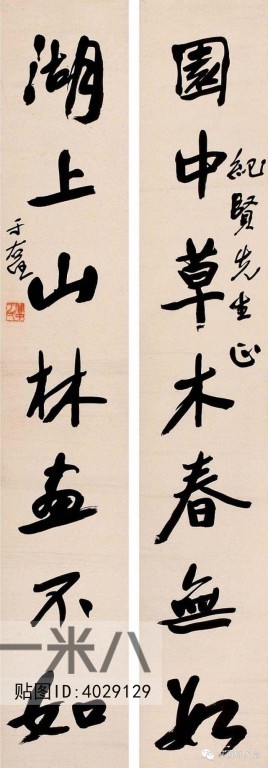 園中草木春無數
紀賢先生正
湖上山林畫不如
于右任
一米八
贴图ID:4029129